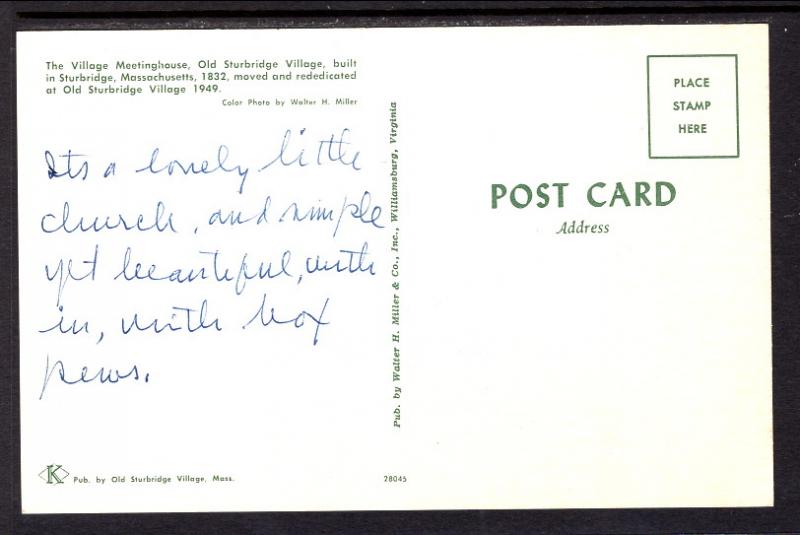 The Village Meetinghouse, Old Sturbridge Village, built
in Sturbridge, Massachusetts, 1832, moved and rededicated
at Old Sturbridge Village 1949.
Color Photo by Walter H. Miller
Its a lovely little
church, and simple
yet beautiful, with
in, with box
pews.
K Pub. by Old Sturbridge Village, Mass.
28045
Pub. by Walter H. Miller & Co., Inc., Williamsburg, Virginia
PLACE
STAMP
HERE
POST CARD
Address